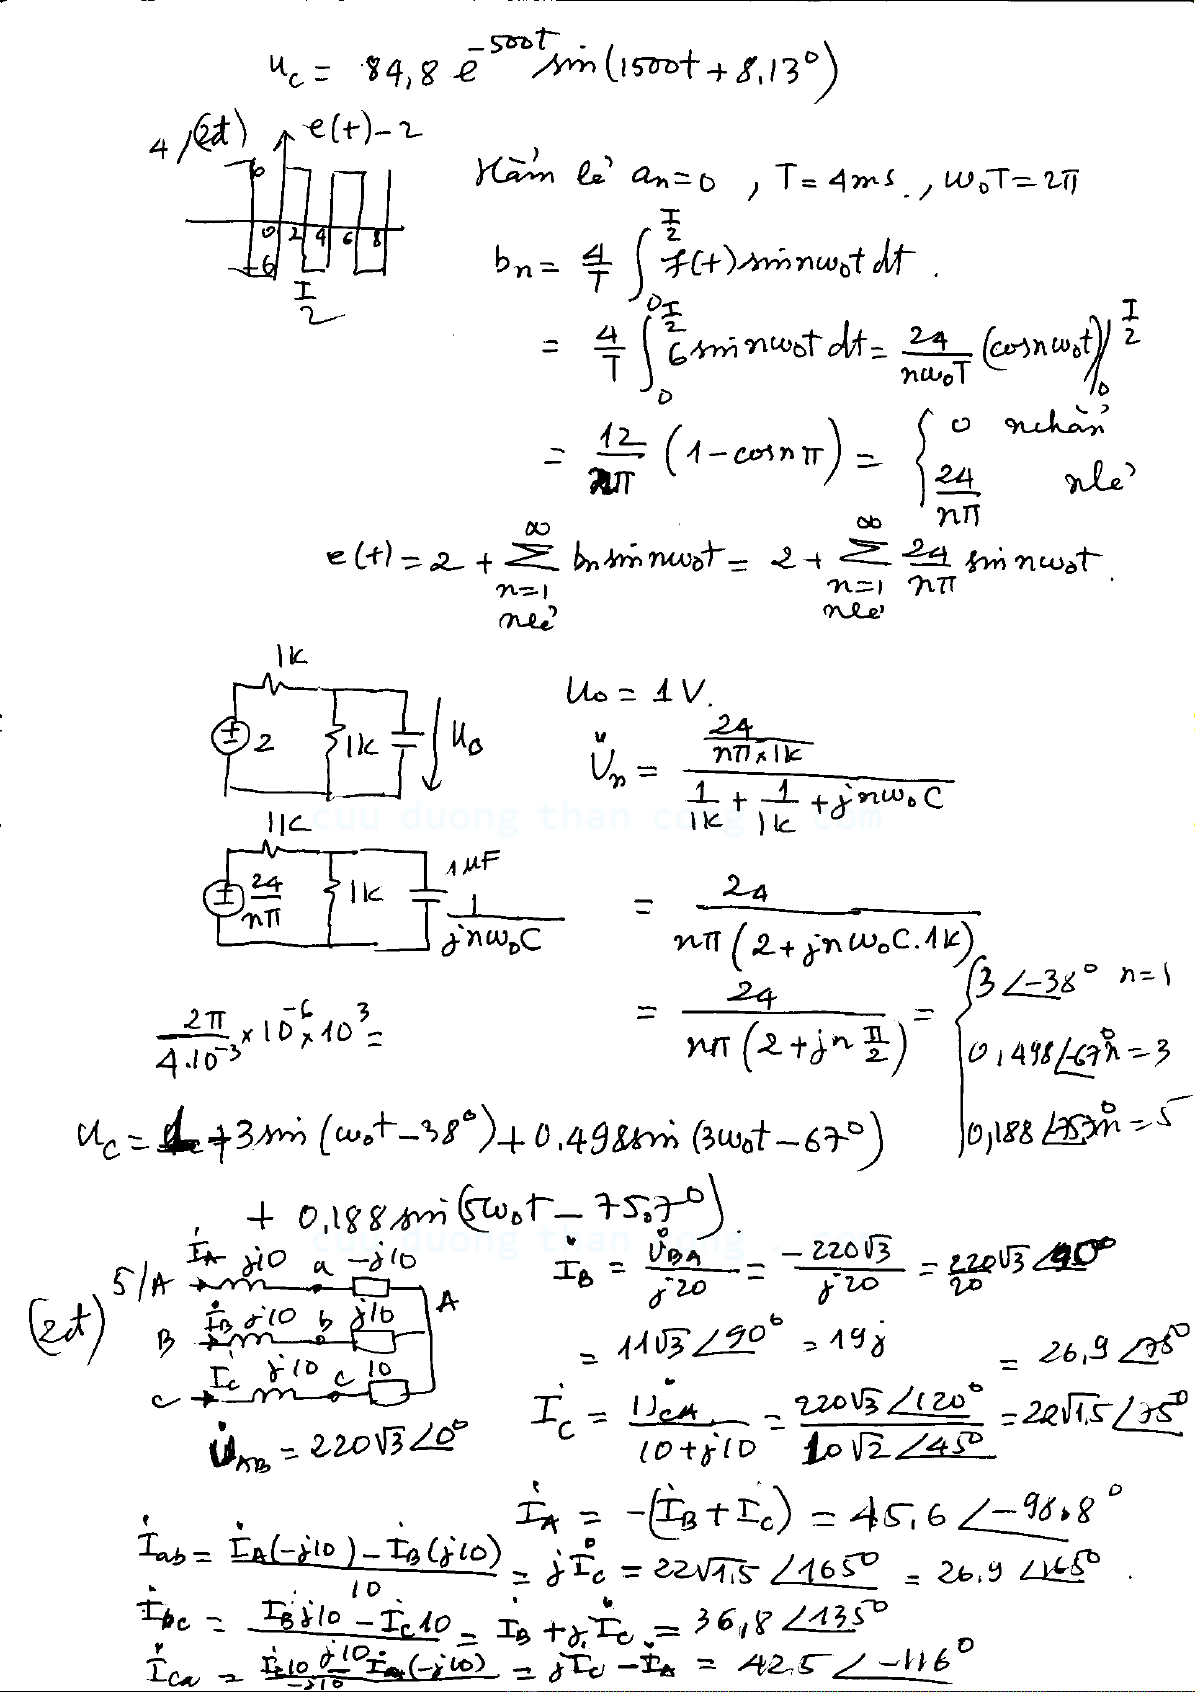 u_c = 84,8 e^{-500t} sin(1500t + 8,13°)
4/(2đ) e(t)-2
6
0 2 4 6 8
-6
T/2
Hàm lẻ a_n=0 , T= 4ms. , ω₀T=2π
b_n = 4/T ∫_0^{T/2} f(t) sin nω₀t dt .
= 4/T ∫_0^{T/2} 6 sin nω₀t dt = 24/(nω₀T) (cos nω₀t)|_0^{T/2}
= 12/(nπ) (1-cos nπ) = { 0 n chẵn
24/(nπ) n lẻ
e(t) = 2 + Σ_{n=1, n lẻ}^∞ b_n sin nω₀t = 2 + Σ_{n=1, n lẻ}^∞ 24/(nπ) sin nω₀t .
1K
2 1K U₀
U₀ = 1V.
U̇_n = (24/(nπ×1K)) / (1/1K + 1/1K + jnω₀C)
cuu duong than cong . com
1K
24/(nπ) 1K 1μF 1/(jnω₀C)
= 24 / (nπ(2+jnω₀C.1K))
2π/(4.10^{-3}) × 10^{-6} × 10^3 =
= 24 / (nπ(2+jn π/2)) = { 3∠-38° n=1
0,498∠-67° n=3
0,188∠-75,7° n=5
u_c = 1 + 3 sin(ω₀t-38°) + 0.498 sin(3ω₀t-67°)
+ 0,188 sin(5ω₀t - 75.7°).
cuu duong than cong . com
5/ (2đ)
A İ_A j10 a -j10 A
B İ_B j10 b j10
C İ_c j10 c 10
U̇_AB = 220√3∠0°
İ_B = U̇_BA/j20 = -220√3/j20 = 220√3/20 ∠90°
= 11√3∠90° = 19j
İ_C = U̇_CA/(10+j10) = 220√3∠120°/(10√2∠45°) = 22√1,5∠75°
= 26,9∠75°
İ_A = -(İ_B+İ_C) = 45,6∠-98,8°
İ_ab = (İ_A(-j10)-İ_B(j10))/10 = jİ_c = 22√1,5∠165° = 26,9∠165° .
İ_bc = (İ_B j10 - İ_C 10)/j10 = İ_B + jİ_C = 36,8∠135°
İ_ca = (İ_c10 - İ_A(-j10))/(-j10) = jİ_C - İ_A = 42,5∠-116°